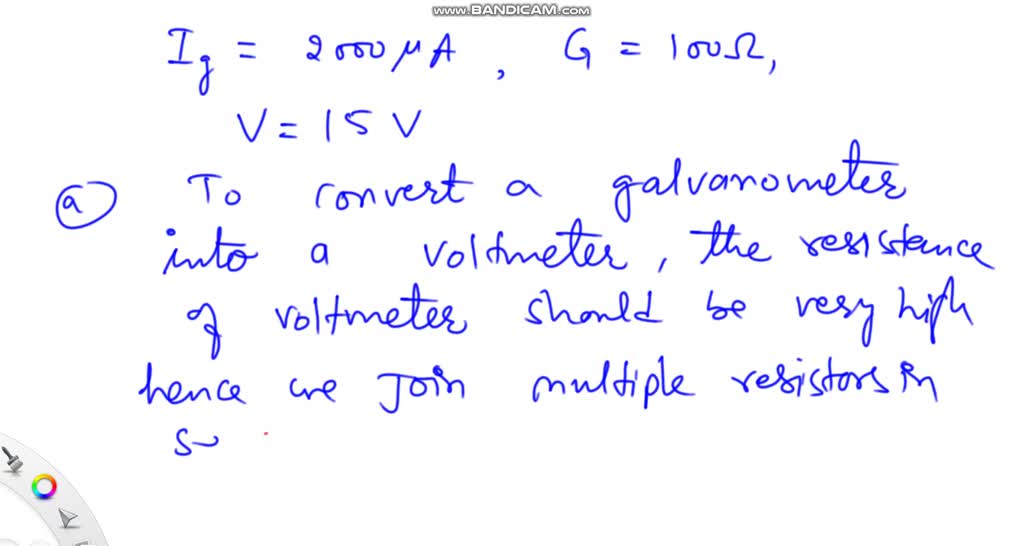 www.BANDICAM.com
Ig = 2000 μA, G = 100Ω,
V = 15 V
(a) To convert a galvanometer
into a voltmeter, the resistance
of voltmeter should be very high
hence we Join multiple resistors in